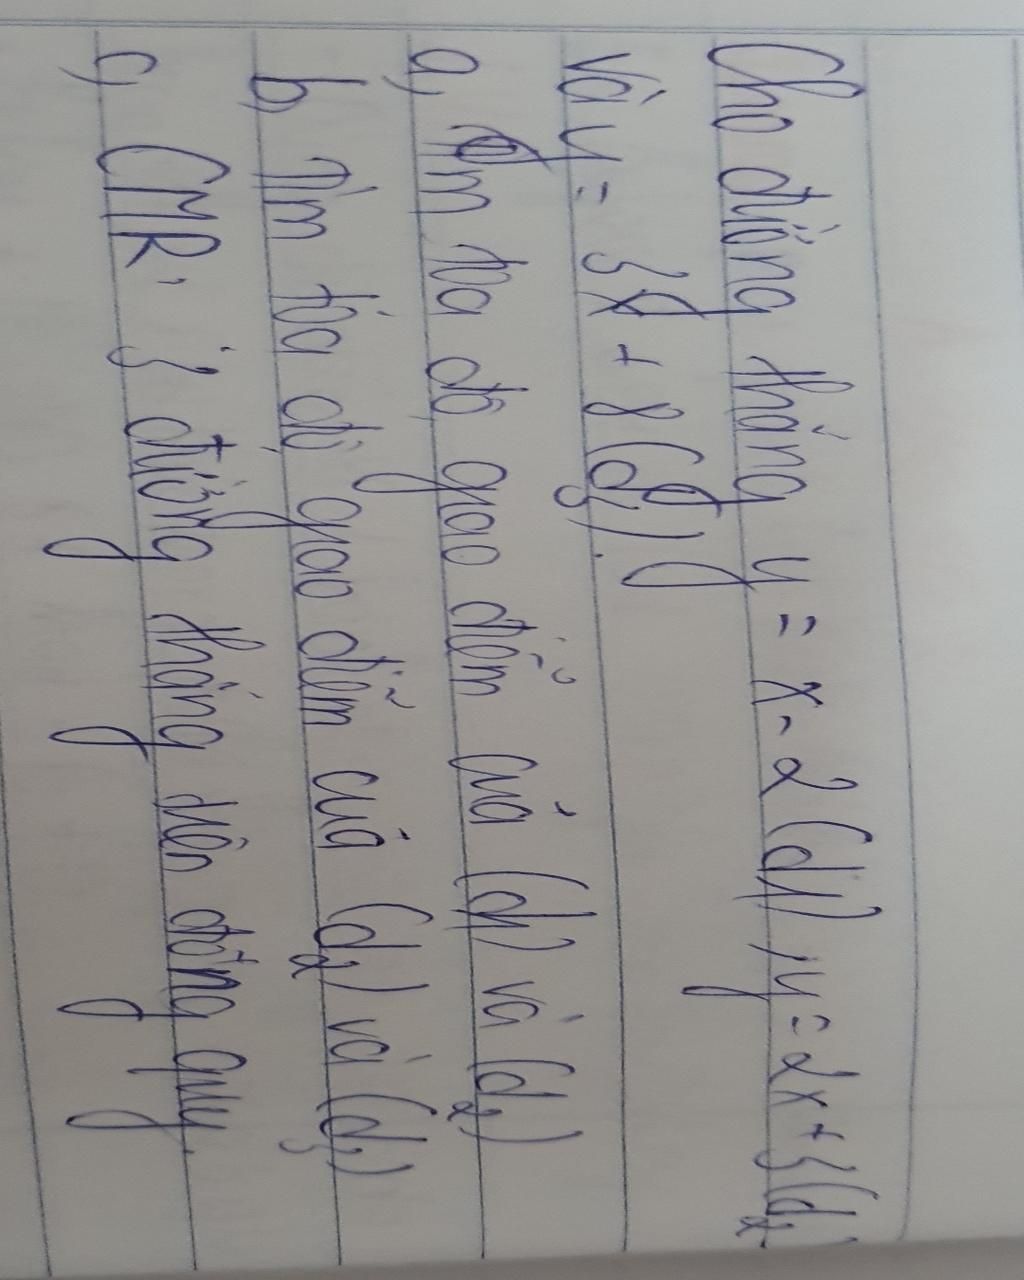 Cho đường thẳng y = x - 2 (d1), y = 2x + 3 (d2)
và y = 3x + 8 (d3).
a, Tìm tọa độ giao điểm của (d1) và (d2)
b, Tìm tọa độ giao điểm của (d2) và (d3)
c, CMR: 3 đường thẳng trên đồng quy.